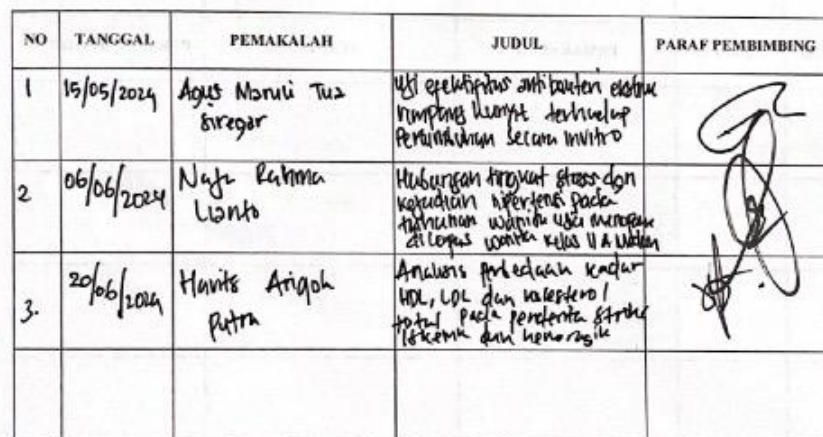 NO TANGGAL PEMAKALAH JUDUL PARAF PEMBIMBING
1 15/05/2024 Agus Maruli Tua
Siregar
Uji efektifitas antibakteri ekstrak
rimpang kunyit terhadap
secara invitro
2 06/06/2024 Naja Rahma
Lianto
Hubungan tingkat stress dgn
kejadian hipertensi pada
tahanan wanita usia menopause
di Lapas wanita kelas II A Medan
3. 20/06/2024 Harits Ariqoh
Putra
Analisis perbedaan kadar
HDL, LDL dan kolesterol
total pada penderita stroke
iskemik dan hemoragik